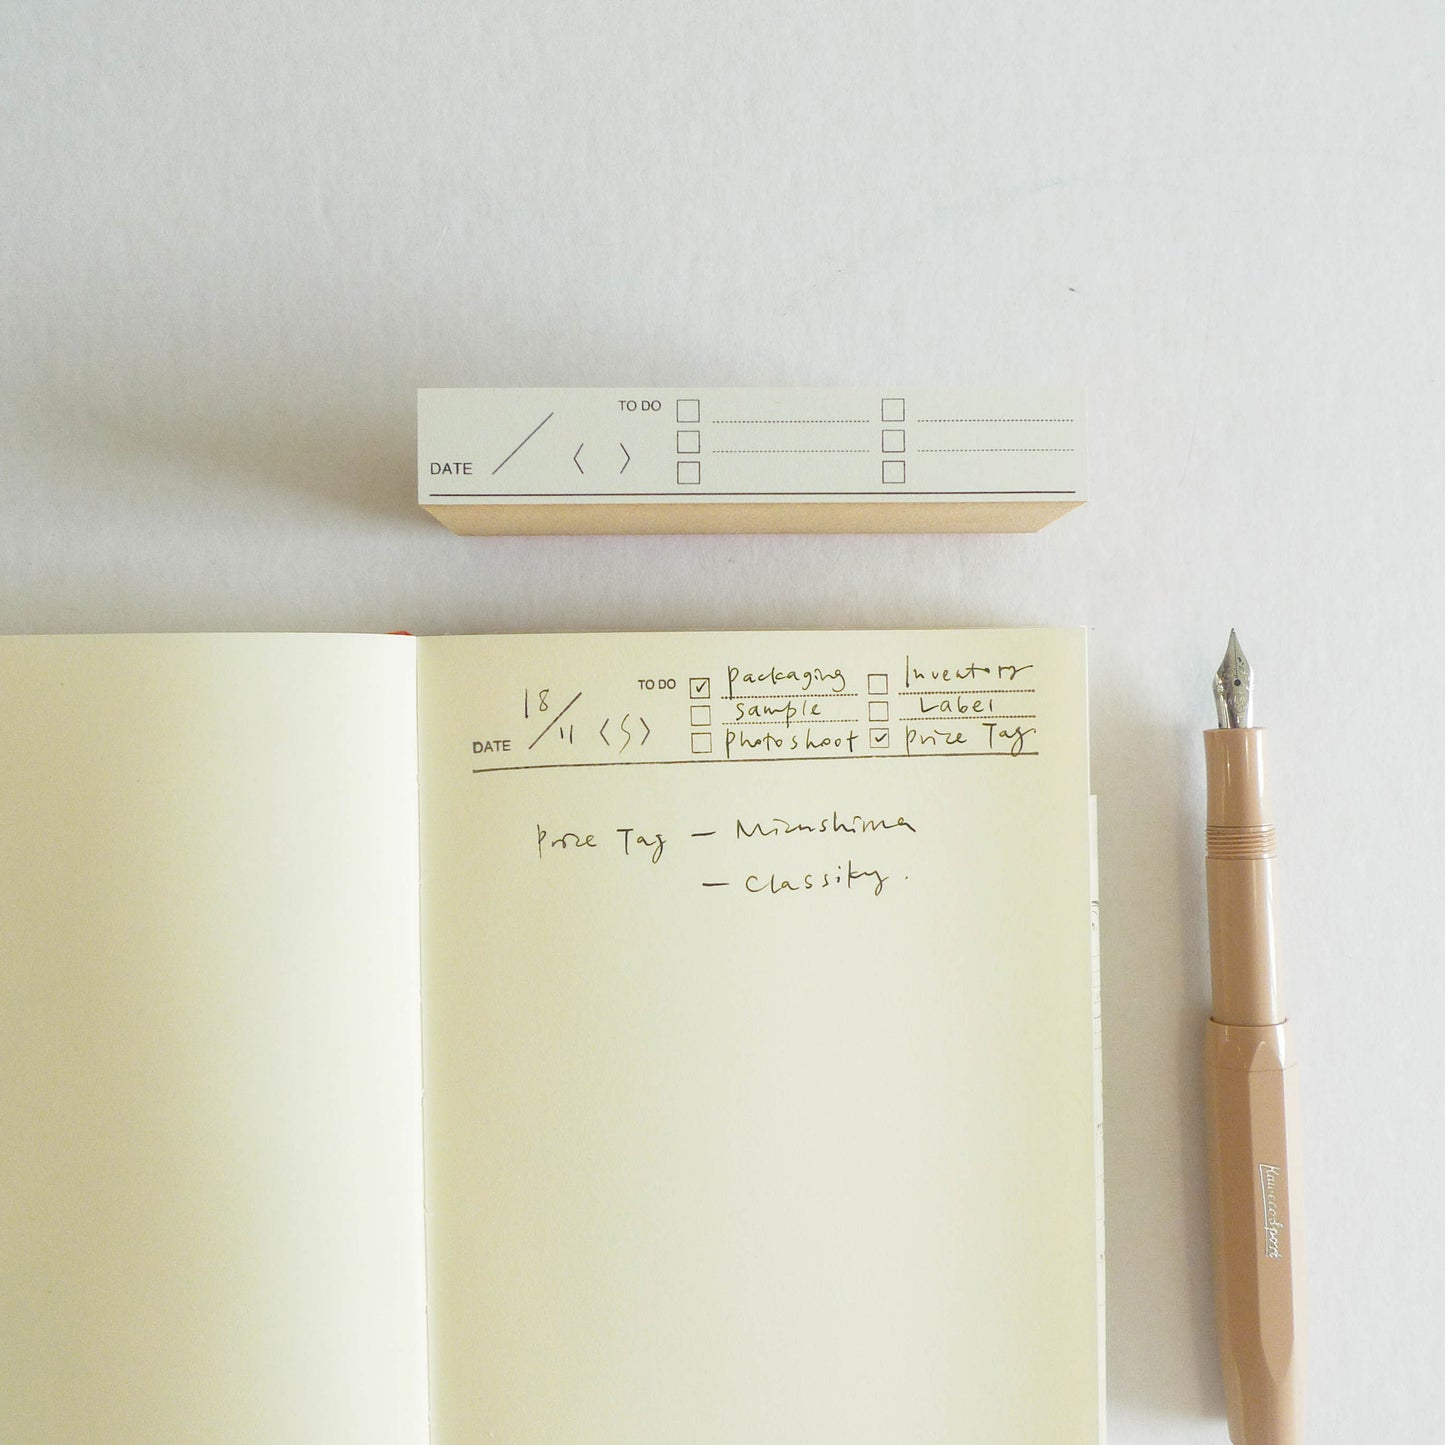 TO DO
DATE / < >
TO DO
packaging Inventory
18/11 <S> sample Label
DATE photoshoot price Tag
price Tag — Mizushima
— Classiky.
Kaweco Sport